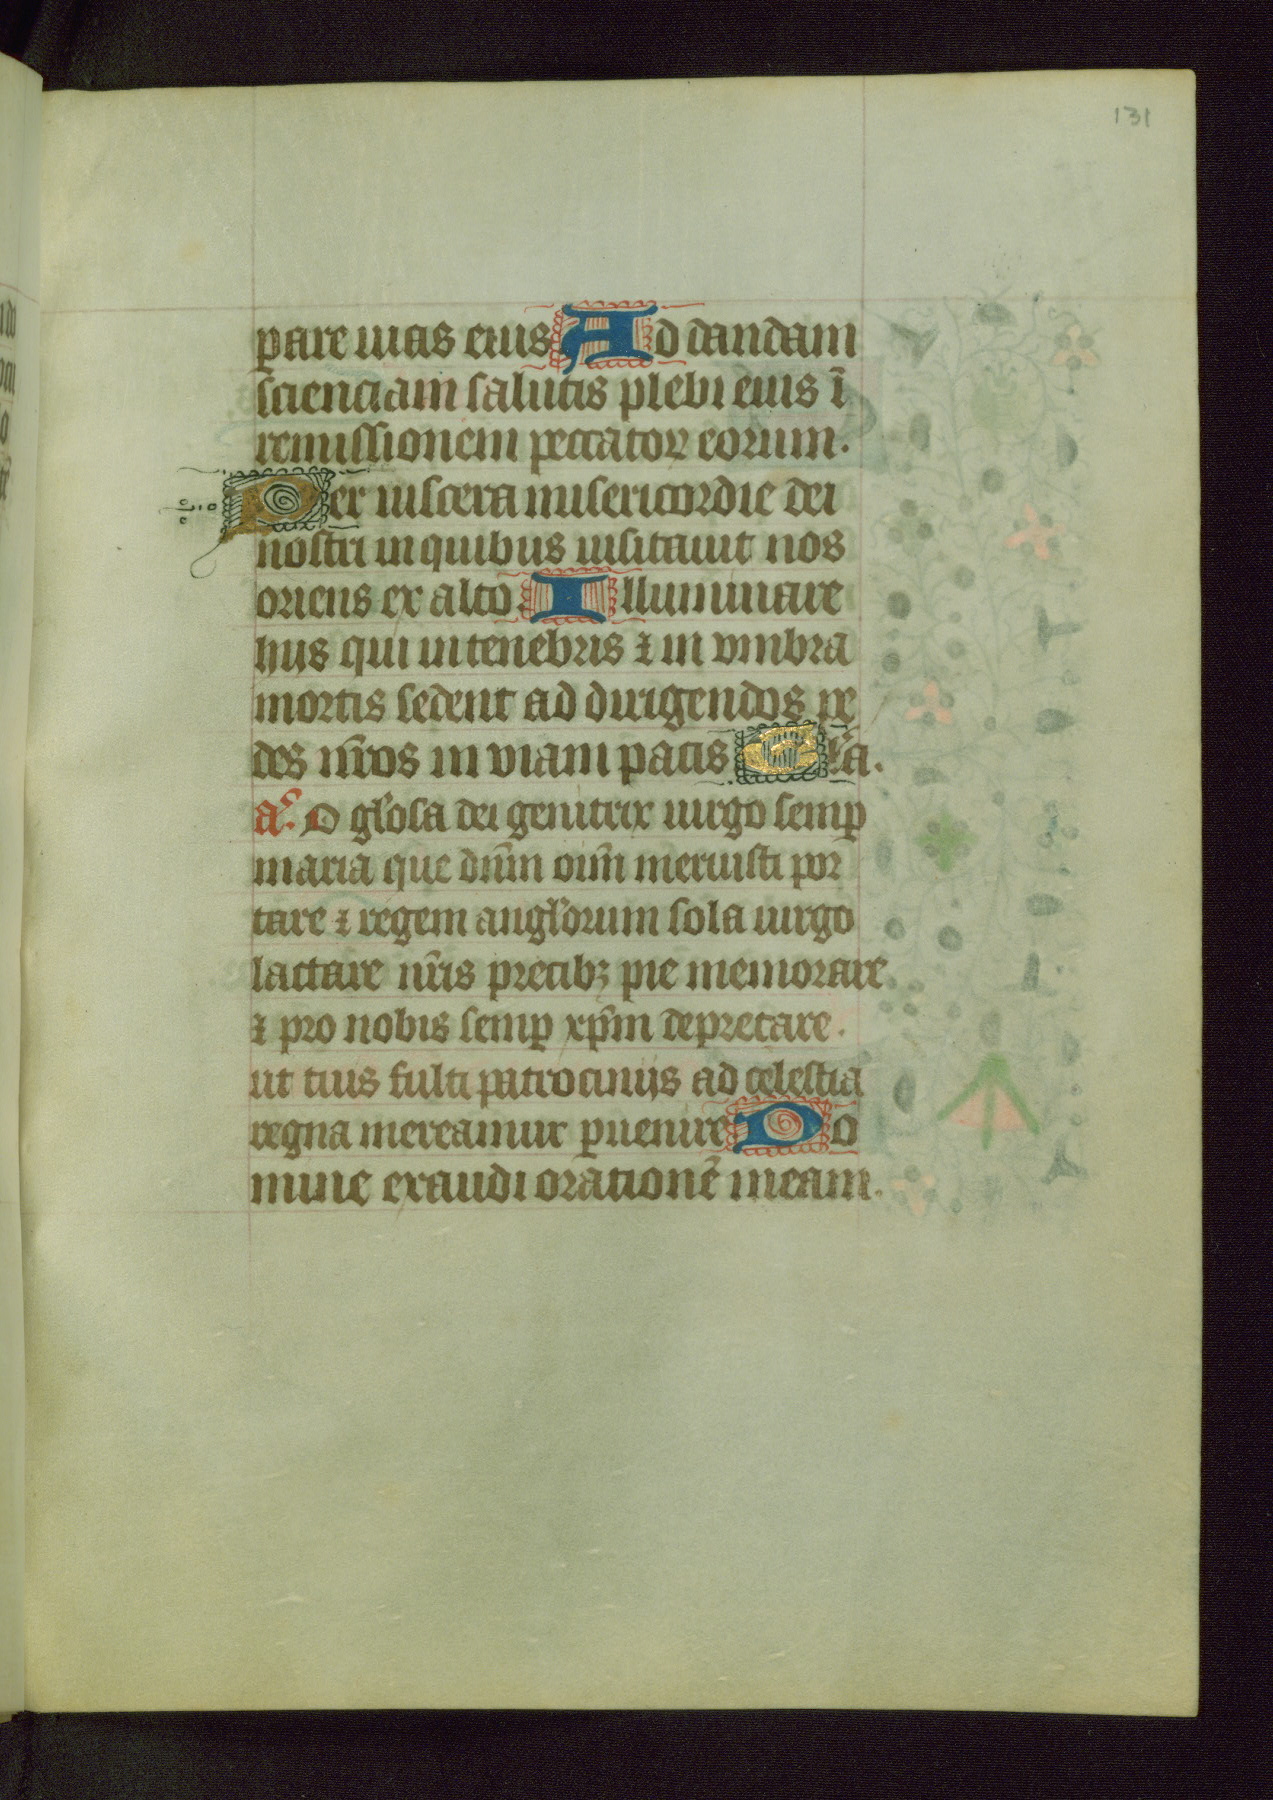 131
pare uias eius Ad dandam
scienciam salutis plebi eius ī
remissionem peccatoꝝ eorum.
Per uiscera misericordie dei
nostri in quibus uisitauit nos
oriens ex alto. Illuminare
hijs qui in tenebris ⁊ in vmbra
mortis sedent ad dirigendos pe
des nr̄os in viam pacis Gl'a.
a᷒. O gl'osa dei genitrix uirgo semꝑ
maria que dn̄m oīm meruisti por
tare ⁊ regem angl'orum sola uirgo
lactare nr̄is precibꝫ pie memorare
⁊ pro nobis semꝑ xp̄m deprecare.
ut tuis fulti patrocinijs ad celestia
regna mereamur ꝑuenire Do
mine exaudi orationē meam.